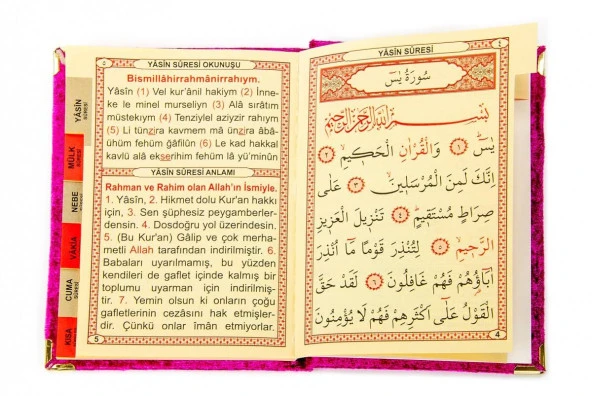 YÂSÎN SÛRESİ OKUNUŞU
Bismillâhirrahmânirrahıym.
Yâsîn (1) Vel kur'ânil hakiym (2) İnne-
ke le minel murseliyn (3) Alâ sırâtım
müstekıym (4) Tenziylel aziyzir rahıym
(5) Li tünzira kavmem mâ ünzira âbâ-
ühüm fehüm gâfilûn (6) Le kad hakkal
kavlü alâ ekserihim fehüm lâ yü'minûn
YÂSÎN SÛRESİ ANLAMI
Rahman ve Rahim olan Allah'ın İsmiyle.
1. Yâsîn, 2. Hikmet dolu Kur'an hakkı
için, 3. Sen şüphesiz peygamberler-
densin. 4. Dosdoğru yol üzerindesin.
5. (Bu Kur'an) Gâlip ve çok merha-
metli Allah tarafından indirilmiştir. 6.
Babaları uyarılmamış, bu yüzden
kendileri de gaflet içinde kalmış bir
toplumu uyarman için indirilmiş-
tir. 7. Yemin olsun ki onların çoğu
gafletlerinin cezasını hak etmişler-
dir. Çünkü onlar îmân etmiyorlar.
5
YÂSÎN SÛRESİ
MÜLK SÛRESİ
NEBE SÛRESİ
VÂKIA
CUMA SÛRESİ
KISA
YÂSÎN SÛRESİ
٤
سُورَةُ يٰسٓ
بِسْمِ اللّٰهِ الرَّحْمٰنِ الرَّحِيمِ
يٰسٓ ﴿١﴾ وَالْقُرْاٰنِ الْحَكِيمِ ﴿٢﴾
اِنَّكَ لَمِنَ الْمُرْسَلِينَ ﴿٣﴾ عَلٰى
صِرَاطٍ مُسْتَقِيمٍ ﴿٤﴾ تَنْزِيلَ الْعَزِيزِ
الرَّحِيمِ ﴿٥﴾ لِتُنْذِرَ قَوْمًا مَٓا اُنْذِرَ
اٰبَٓاؤُهُمْ فَهُمْ غَافِلُونَ ﴿٦﴾ لَقَدْ حَقَّ
الْقَوْلُ عَلٰٓى اَكْثَرِهِمْ فَهُمْ لَا يُؤْمِنُونَ
4